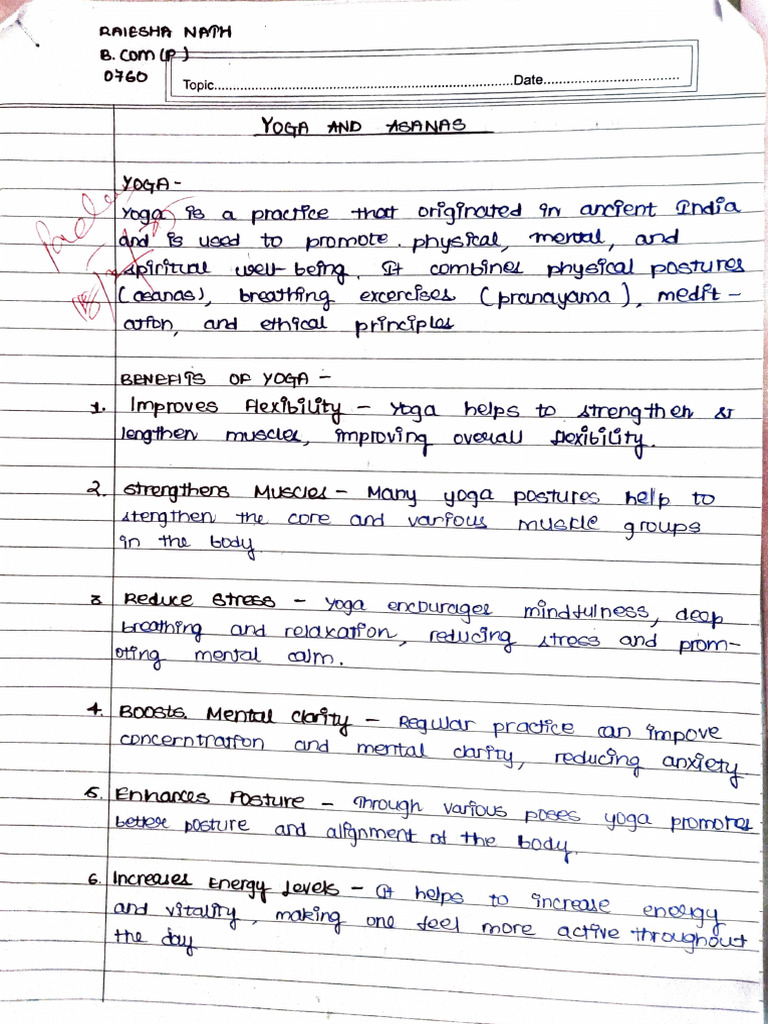 RAIESHA NATH
B.COM (P)
0760
Topic Date
YOGA AND ASANAS
YOGA -
Yoga is a practice that originated in ancient India
and is used to promote. physical, mental, and
spiritual well-being. It combines physical postures
(asanas), breathing excercises (pranayama), medit -
ation, and ethical principles
BENEFITS OF YOGA -
1. Improves Flexibility - Yoga helps to strengthen &
lengthen muscles, improving overall flexibility.
2. Strengthens Muscles - Many yoga postures help to
stengthen the core and various muscle groups
in the body
3 Reduce Stress - Yoga encourages mindfulness, deep
breathing and relaxation, reducing stress and prom-
oting mental calm.
4. Boosts. Mental Clarity - Regular practice can impove
concerntration and mental clarity, reducing anxiety
5. Enhances Posture - Through various poses yoga promotes
better posture and alignment of the body.
6. Increases Energy Levels - It helps to increase energy
and vitality, making one feel more active throughout
the day